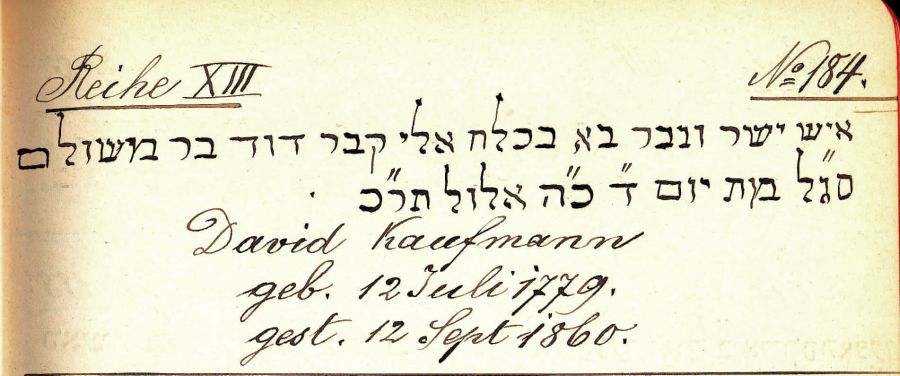 Reihe XIII
No 184.
איש ישר ונבר בא בכלח אלי קבר דוד בר משולם
סג״ל במת יום ד״ כ״ה אלול תר״כ
David Kaufmann
geb. 12 Juli 1779.
gest. 12 Sept 1860.